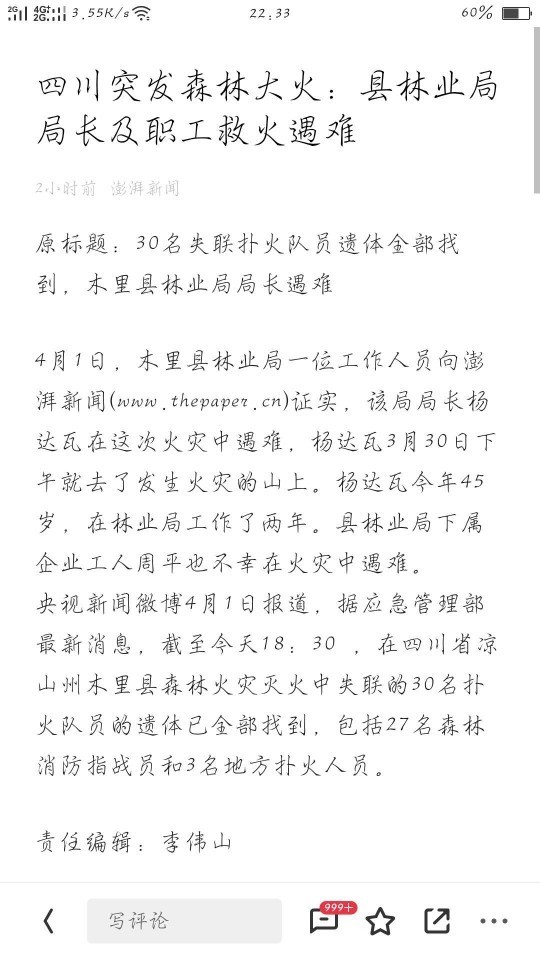 2G 4G+ 2G 3.55K/s 22:33 60%
四川突发森林大火：县林业局
局长及职工救火遇难
2小时前 澎湃新闻
原标题：30名失联扑火队员遗体全部找
到，木里县林业局局长遇难
4月1日，木里县林业局一位工作人员向澎
湃新闻(www.thepaper.cn)证实，该局局长杨
达瓦在这次火灾中遇难，杨达瓦3月30日下
午就去了发生火灾的山上。杨达瓦今年45
岁，在林业局工作了两年。县林业局下属
企业工人周平也不幸在火灾中遇难。
央视新闻微博4月1日报道，据应急管理部
最新消息，截至今天18：30 ，在四川省凉
山州木里县森林火灾灭火中失联的30名扑
火队员的遗体已全部找到，包括27名森林
消防指战员和3名地方扑火人员。
责任编辑：李伟山
写评论 999+